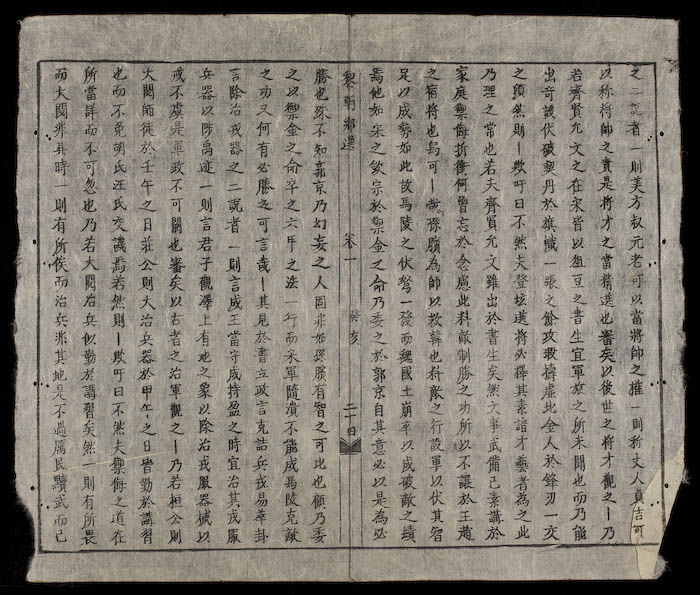 之二說者一則美方叔元老可以當將帥之推一則稱丈人貞吉可
以称將帥之貴是將才之當精選也審矣以後世之將才觀之｜乃
若齊賢允文之在宋皆以俎豆之書生宜軍旅之所未閑也而乃能
出奇設伏破契丹於旗幟一張之餘攻救擣虛此金人於鋒刃一交
之頃然則｜欺吁曰不然夫登垓選將必得其素諳才藝者為之此
乃理之常也若夫齊賢允文雖出於書生矣然文事武備已素講於
家庭禦侮折衝何嘗忘於念慮此料敵制勝之功所以不讓於王趙
之宿將也烏可｜哉孫臏為師以救韓也料敵之行設軍以伏其智
足以成勢如此故馬陵之伏弩一發而魏國土崩卒以成破敵之績
焉他如宋之欽宗於禦金之命乃委之於郭京自其意必以是為必
黎朝鄉選 卷一 癸亥 二十四
勝也殊不知郭京乃幻妄之人固非如孫臏有智之可比也顧乃委
之以禦金之命卒之六甲之法一行而宋軍隨潰不能成馬陵克敵
之功又何有必勝之可言哉｜其見於書立政言克詰兵戎易萃卦
言除治戎器之二說者一則言成王當守成持盈之時宜治其戎服
兵器以陟禹迹一則言君子觀澤上有地之象以除治戎服器械以
戒不虞是軍政不可闕也審矣以古者之治軍觀之｜乃若桓公則
大閱師徒於壬午之日莊公則大治兵器於甲午之日皆勤於講習
也而不免胡氏汪氏交譏焉若然則｜欺吁曰不然夫禦侮之道在
所當詳而不可忽也乃若大閱治兵似勤於講習矣然一則有所畏
而大閱非其時一則有所俟而治兵非其地是不過厲民黷武而已